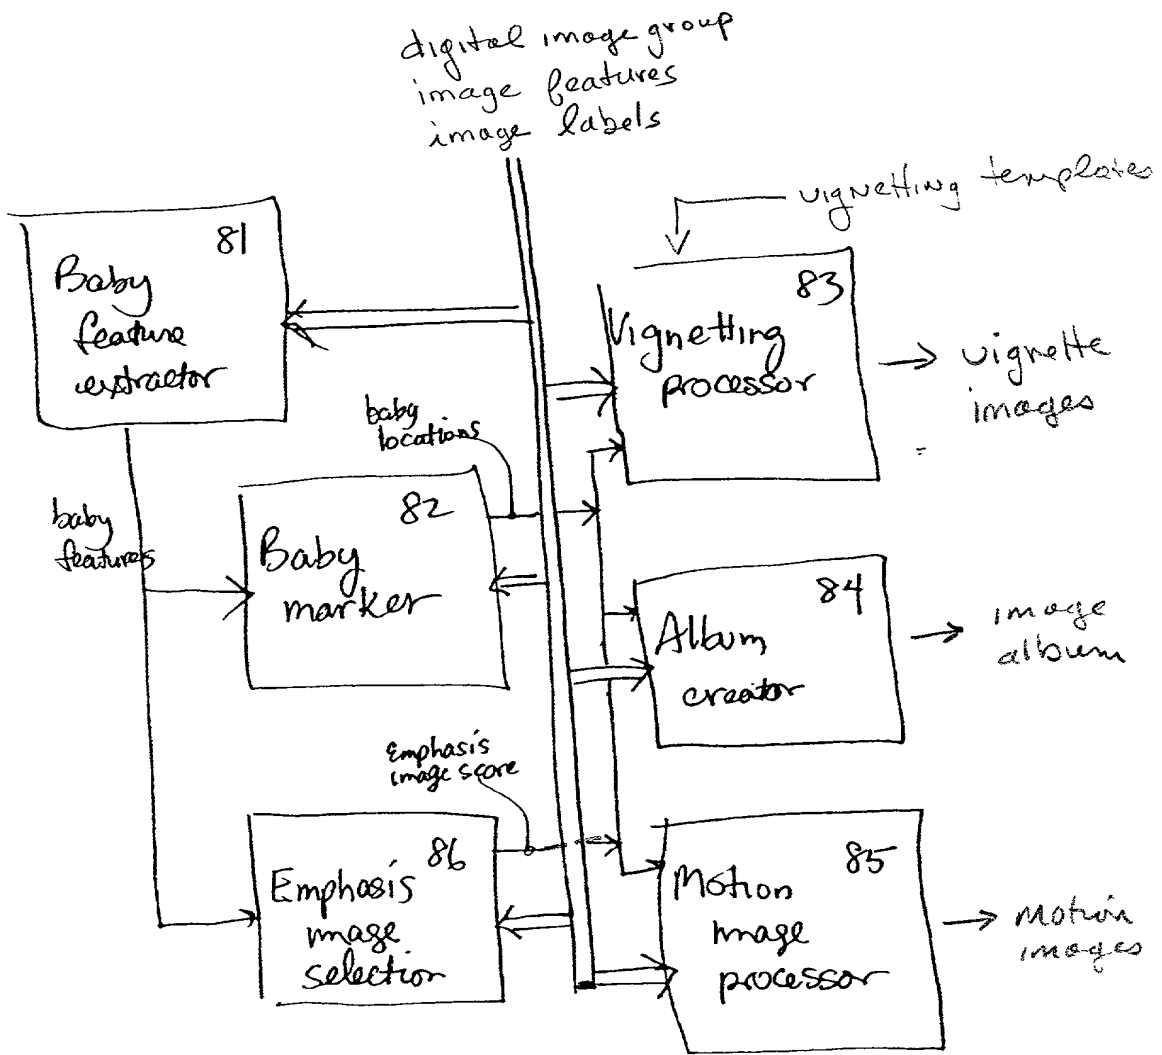 digital image group
image features
image labels
vignetting templates
81
Baby
feature
extractor
83
Vignetting
processor
vignette
images
baby
locations
82
Baby
marker
baby
features
84
Album
creator
image
album
Emphasis
image score
86
Emphasis
image
selection
85
Motion
image
processor
Motion
images